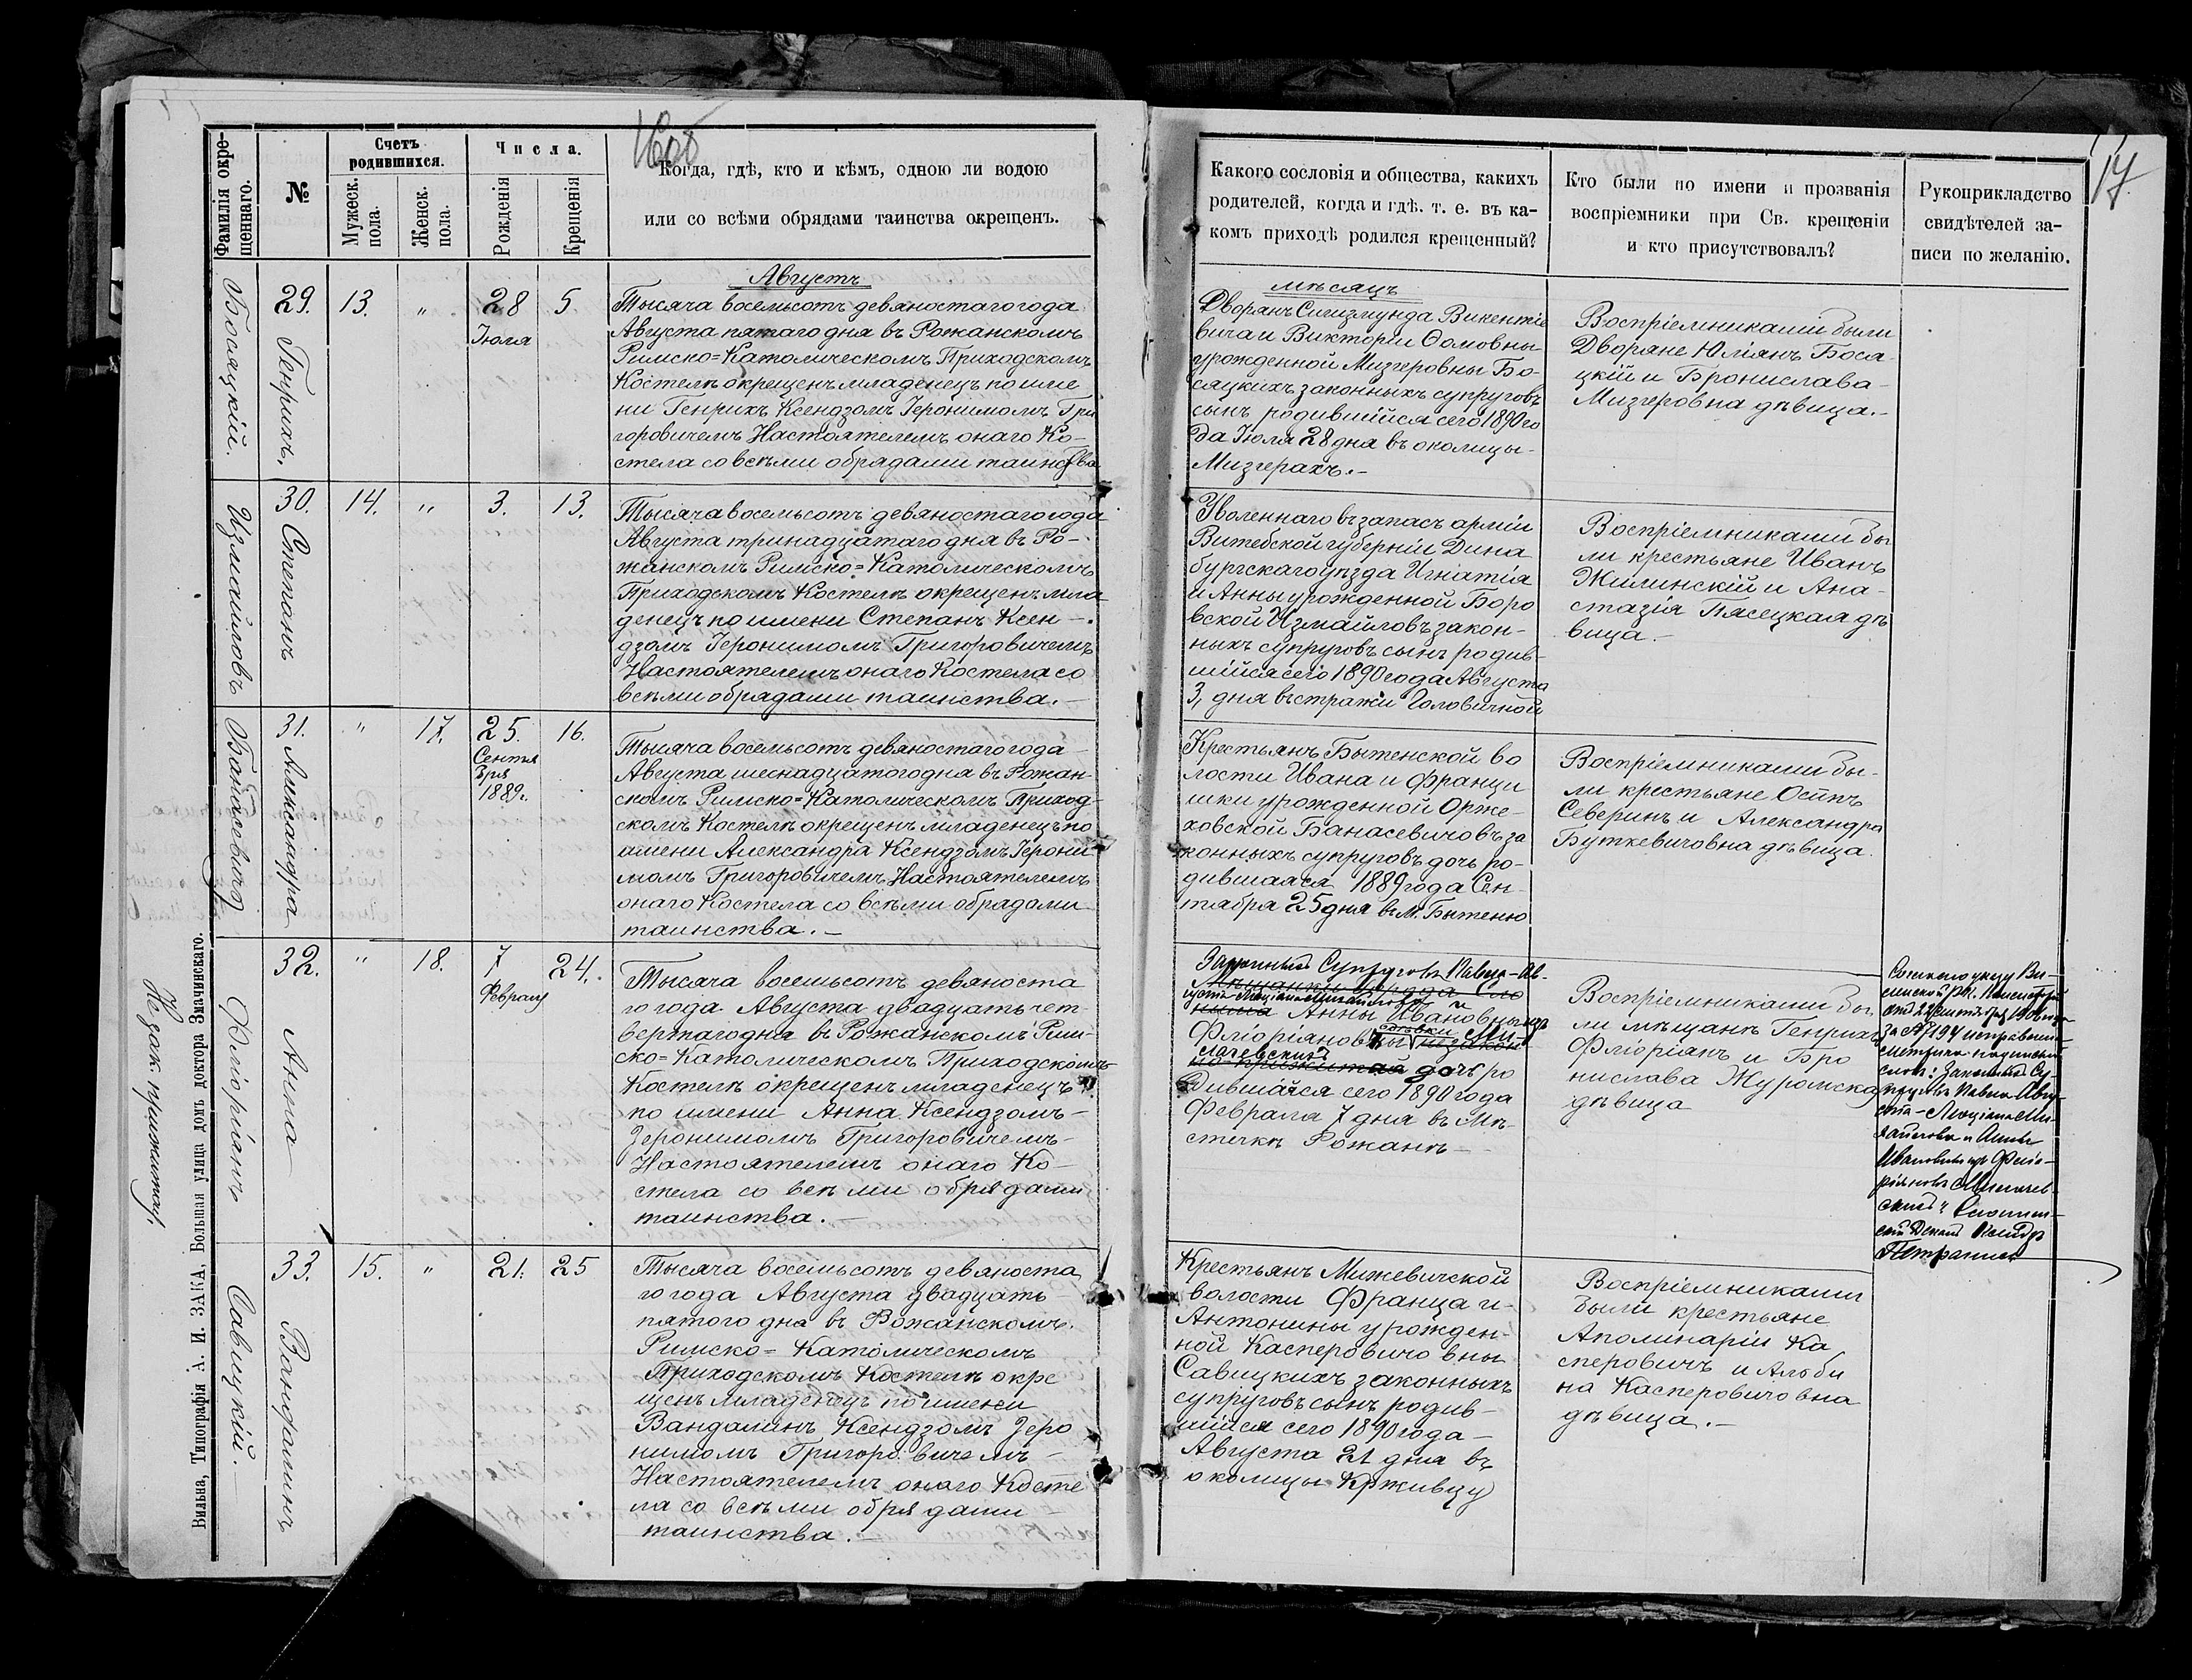 16об
17.
Фамилія окре-
щеннаго.
№
Счетъ
родившихся.
Мужеск.
пола.
Женск.
пола.
Числа.
Рожденія
Крещенія
Когда, гдѣ, кто и кѣмъ, одною ли водою
или со всѣми обрядами таинства окрещенъ.
Какого сословія и общества, какихъ
родителей, когда и гдѣ. т. е. въ ка-
комъ приходѣ родился крещенный?
Кто были по имени и прозванія
воспріемники при Св. крещеніи
и кто присутствовалъ?
Рукоприкладство
свидѣтелей за-
писи по желанію.
Августъ
мѣсяцъ
Босяцкій.
29.
Генрихъ.
13.
"
28
Іюля
5.
Тысяча восемьсотъ девяностаго года
Августа пятаго дня въ Рожанскомъ
Римско=Католическомъ Приходскомъ
Костелѣ окрещенъ младенецъ по име
ни Генрихъ Ксендзомъ Іеронимомъ Гри
горовичемъ Настоятелемъ онаго Ко-
стела со всѣми обрядами таинства
Дворянъ Сигизмунда Викентіе
вича и Викторіи Ѳомовны
урожденной Мизгеровны Бо-
сяцкихъ законныхъ супруговъ
сынъ родившійся сего 1890 го
да Іюля 28 дня въ околицы
Мизгерахъ.-
Воспріемниками были
Дворяне Юліянъ Бося
цкій и Бронислава
Мизгеровна дѣвица.-
Измаиловъ
30.
Степанъ
14.
"
3.
13.
Тысяча восемьсотъ девяностаго года
Августа тринадцатаго дня въ Ро-
жанскомъ Римско=Католическомъ
Приходскомъ Костелѣ окрещенъ мла
денецъ по имени Степанъ Ксен-
дзомъ Іеронимомъ Григоровичемъ
Настоятелемъ онаго Костела со
всѣми обрядами таинства.-
Уволеннаго въ запасъ арміи
Витебской губерніи Дина
бургскаго уѣзда Игнатія
и Анны урожденной Боро
вской Измайловъ закон-
ныхъ супруговъ сынъ родив-
шійся сего 1890 года Августа
3, дня въ стражи Головичной
Воспріемниками бы
ли крестьяне Иванъ
Жилинскій и Ана-
стазія Пясецкая дѣ
вица.-
31.
Александра
"
17.
25.
Сентя
бря
1889г.
16.
Тысяча восемьсотъ девяностаго года
Августа шеснадцатого дня въ Рожан-
скомъ Римско=Католическомъ Приход-
скомъ Костелѣ окрещенъ младенецъ по
имени Александра Ксендзомъ Іерони
момъ Григоровичемъ Настоятелемъ
онаго Костела со всѣми обрядами
таинства.-
Крестьянъ Бытенской во
лости Ивана и Франци
шки урожденной Орже-
ховской Банасевичовъ за
конныхъ супруговъ дочь ро-
дившаяся 1889 года Сен-
тября 25 дня въ м. Бытеню
Воспріемниками бы-
ли крестьяне Осипъ
Северинъ и Александра
Буткевичовна дѣвица.
Фліоріянъ
32.
Анна
"
18.
7
Февраля
24.
Тысяча восемьсотъ девяноста
го года Августа двадцать чет
вертаго дня въ Рожанскомъ Рим-
ско=Католическомъ Приходскомъ
Костелѣ окрещенъ младенецъ
по имени Анна Ксендзомъ-
Іеронимомъ Григоровичемъ-
Настоятелемъ онаго Ко-
стела со всѣми обрядами
таинства.-
Законныхъ Супруговъ Павла-Ав-
густа
Анны Ивановны изъ
Фліоріановъ
дочь ро
дившаяся сего 1890 года
Февраля 7 дня въ Мѣ-
стечкѣ Рожанѣ-
Воспріемниками бы
ли мѣщанѣ Генрихъ
Фліоріянъ и Бро
нислава Журомска
дѣвица
Согласно указу Ви-
ленской Р.К. Консисторіи
за № 7194 исправлена
Законныхъ Су-
пруговъ Павла-Авгу-
ста-
и Анны
Ивановны изъ Фліо-
ріяновъ
Ксендзъ
Незак. прижитая.
Савицкій.-
33.
Вандалинъ
15.
"
21.
25
Тысяча восемьсотъ девяноста
го года Августа двадцать
пятого дня въ Рожанскомъ
Римско=Католическомъ
Приходскомъ Костелѣ окре
щенъ младенецъ по имени
Вандалинъ Ксендзомъ Іеро
нимомъ Григоровичемъ-
Настоятелемъ онаго Косте
ла со всѣми обрядами
таинства.-
Крестьянъ Мижевичской
волости Франца и-
Антонины урожден-
ной Касперовичовны
Савицкихъ законныхъ
супруговъ сынъ родив-
шійся сего 1890 года-
Августа 21 дня въ
околицы Крживцу
Воспріемниками
были крестьяне
Аполинарій Ка
сперовичъ и Альби
на Касперовичовна
дѣвица.-
Вильна, Типографія А. И. ЗАКА, Большая улица домъ доктора Змачинскаго.